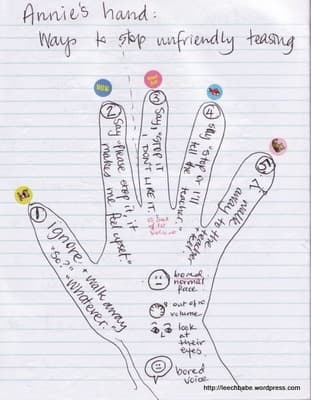 Annie's hand:
Ways to stop unfriendly teasing
1
Ignore + walk away
"So?"
"Whatever."
2
Say "Please stop it, it
makes me feel upset"
3
Say, "STOP IT
I DONT LIKE IT."
out of 10
volume
4
say "stop or I'll
the teacher."
5
walk
away to the
teacher
bored
normal
face.
out of 10
volume.
look
at
their
eyes.
bored
voice
http://leechbabe.wordpress.com